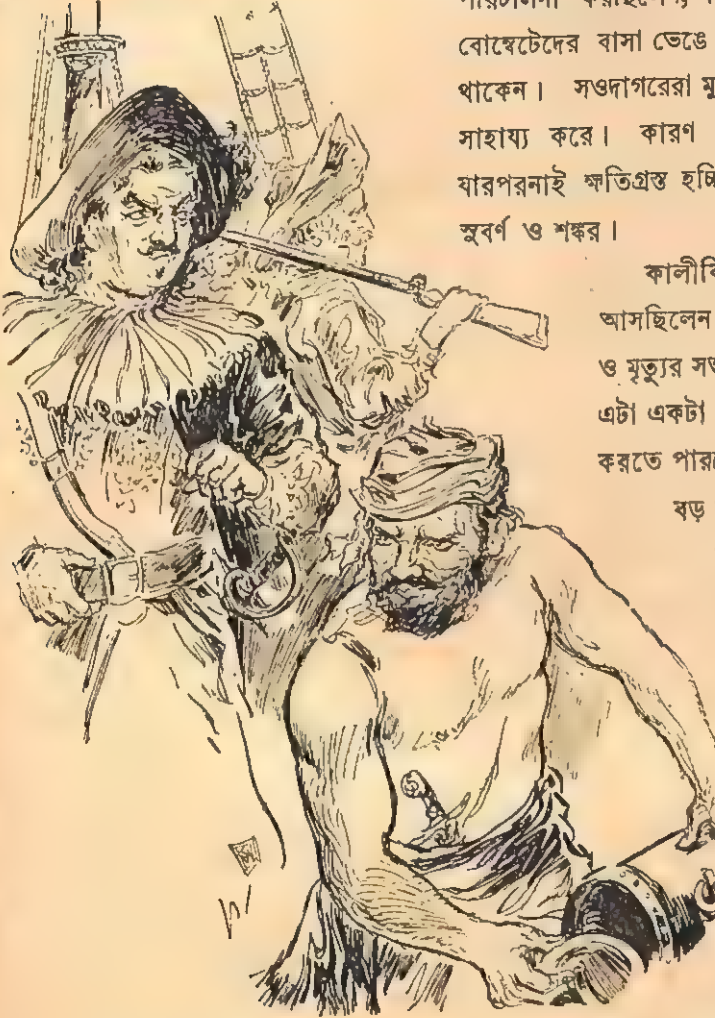 বোম্বেটেদের বাসা ভেঙে
থাকেন। সওদাগরেরা মু
সাহায্য করে। কারণ
যারপরনাই ক্ষতিগ্রস্ত হচ্ছি
সুবর্ণ ও শঙ্কর।
কালীবি
আসছিলেন
ও মৃত্যুর সং
এটা একটা
করতে পার
বড়